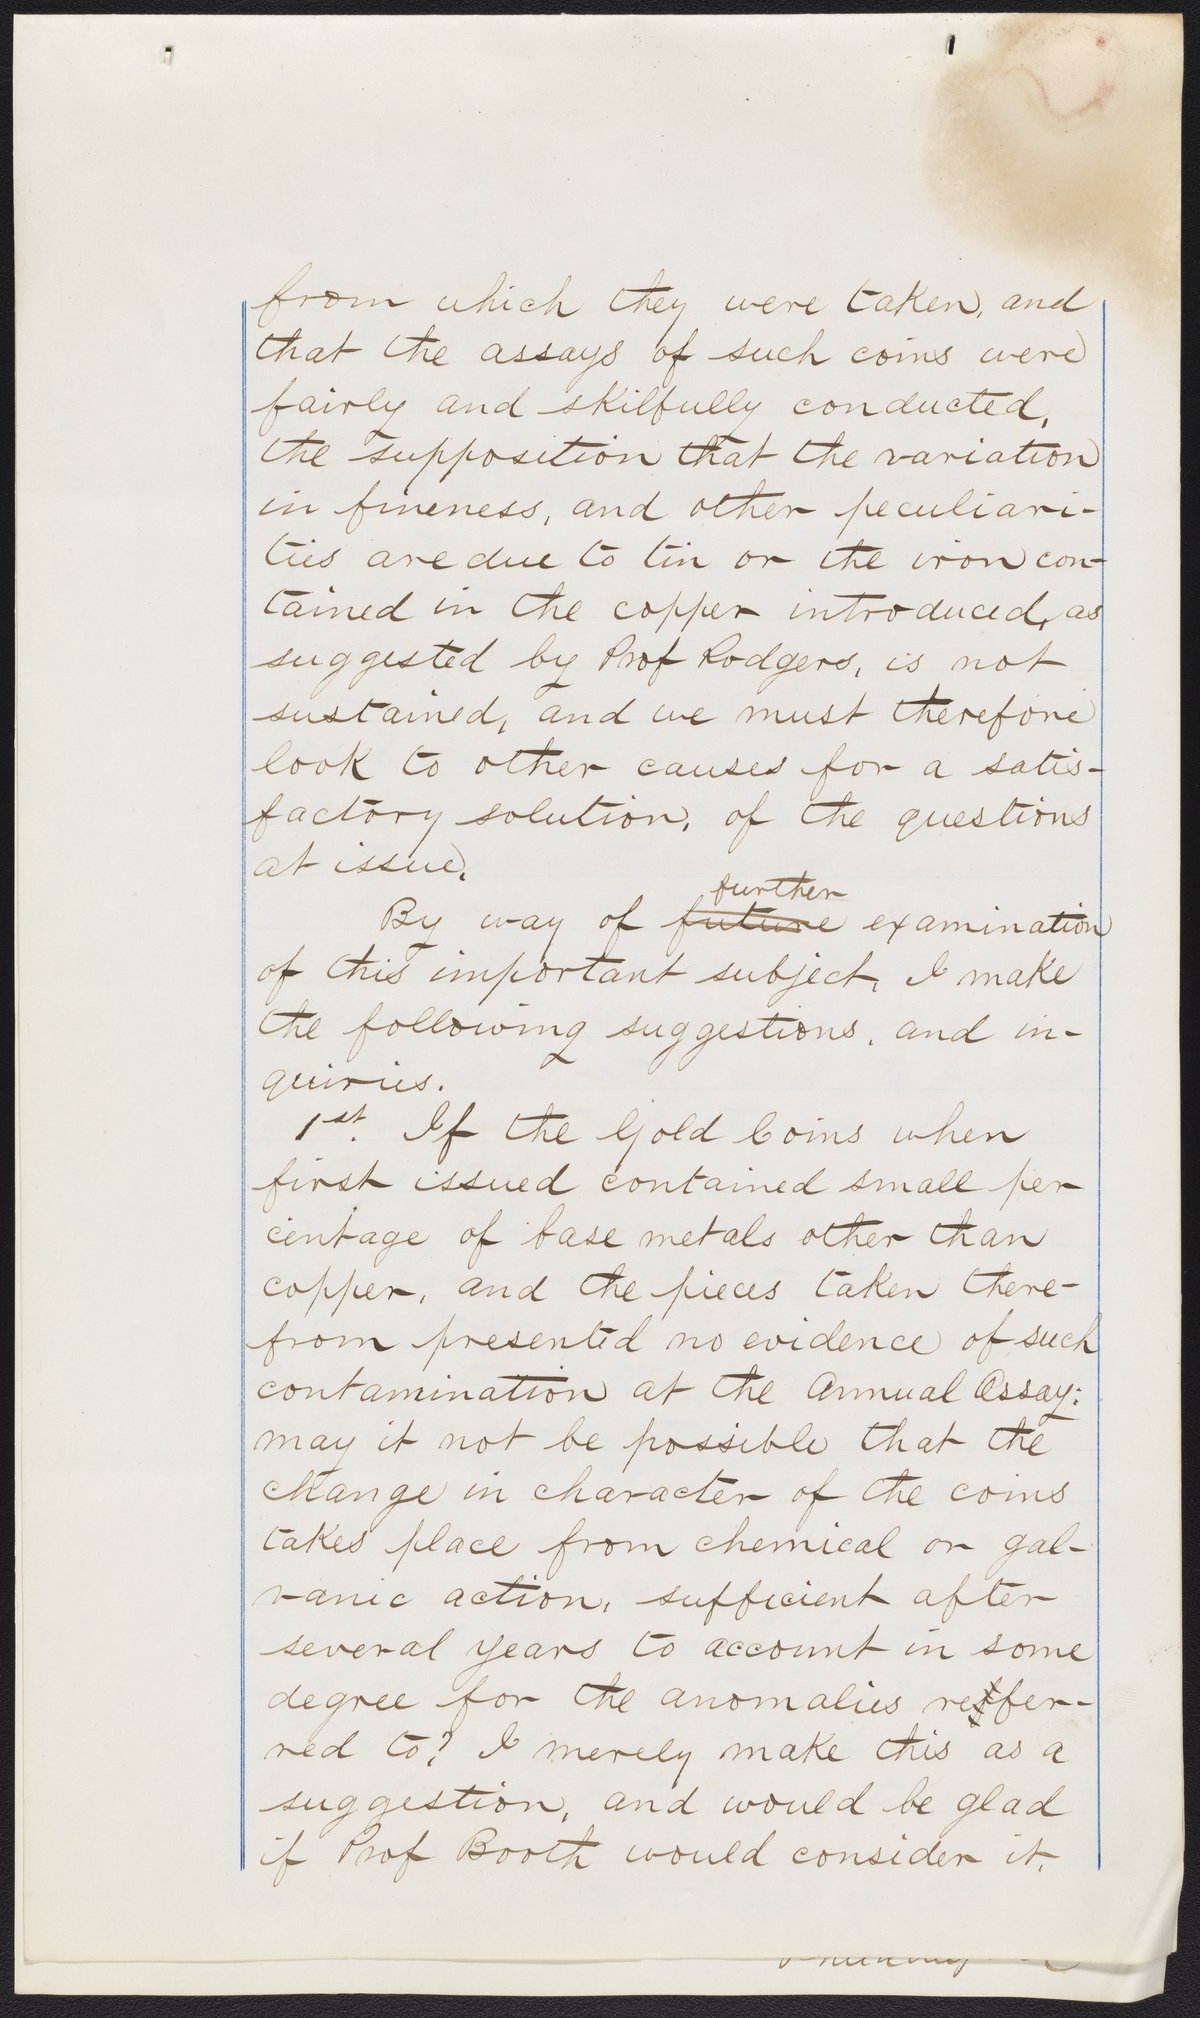 from which they were taken, and
that the assays of such coins were
fairly and skilfully conducted,
the supposition that the variation
in fineness, and other peculiari-
ties are due to tin or the iron con-
tained in the copper introduced, as
suggested by Prof Rodgers, is not
sustained, and we must therefore
look to other causes for a satis-
factory solution, of the questions
at issue.
further
By way of future examination
of this important subject, I make
the following suggestions, and in-
quiries.
1st. If the Gold Coins when
first issued contained small per
centage of base metals other than
copper, and the pieces taken there-
from presented no evidence of such
contamination at the Annual Assay:
may it not be possible that the
change in character of the coins
takes place from chemical or gal-
vanic action, sufficient after
several years to account in some
degree for the anomalies refer-
red to? I merely make this as a
suggestion, and would be glad
if Prof Booth would consider it.